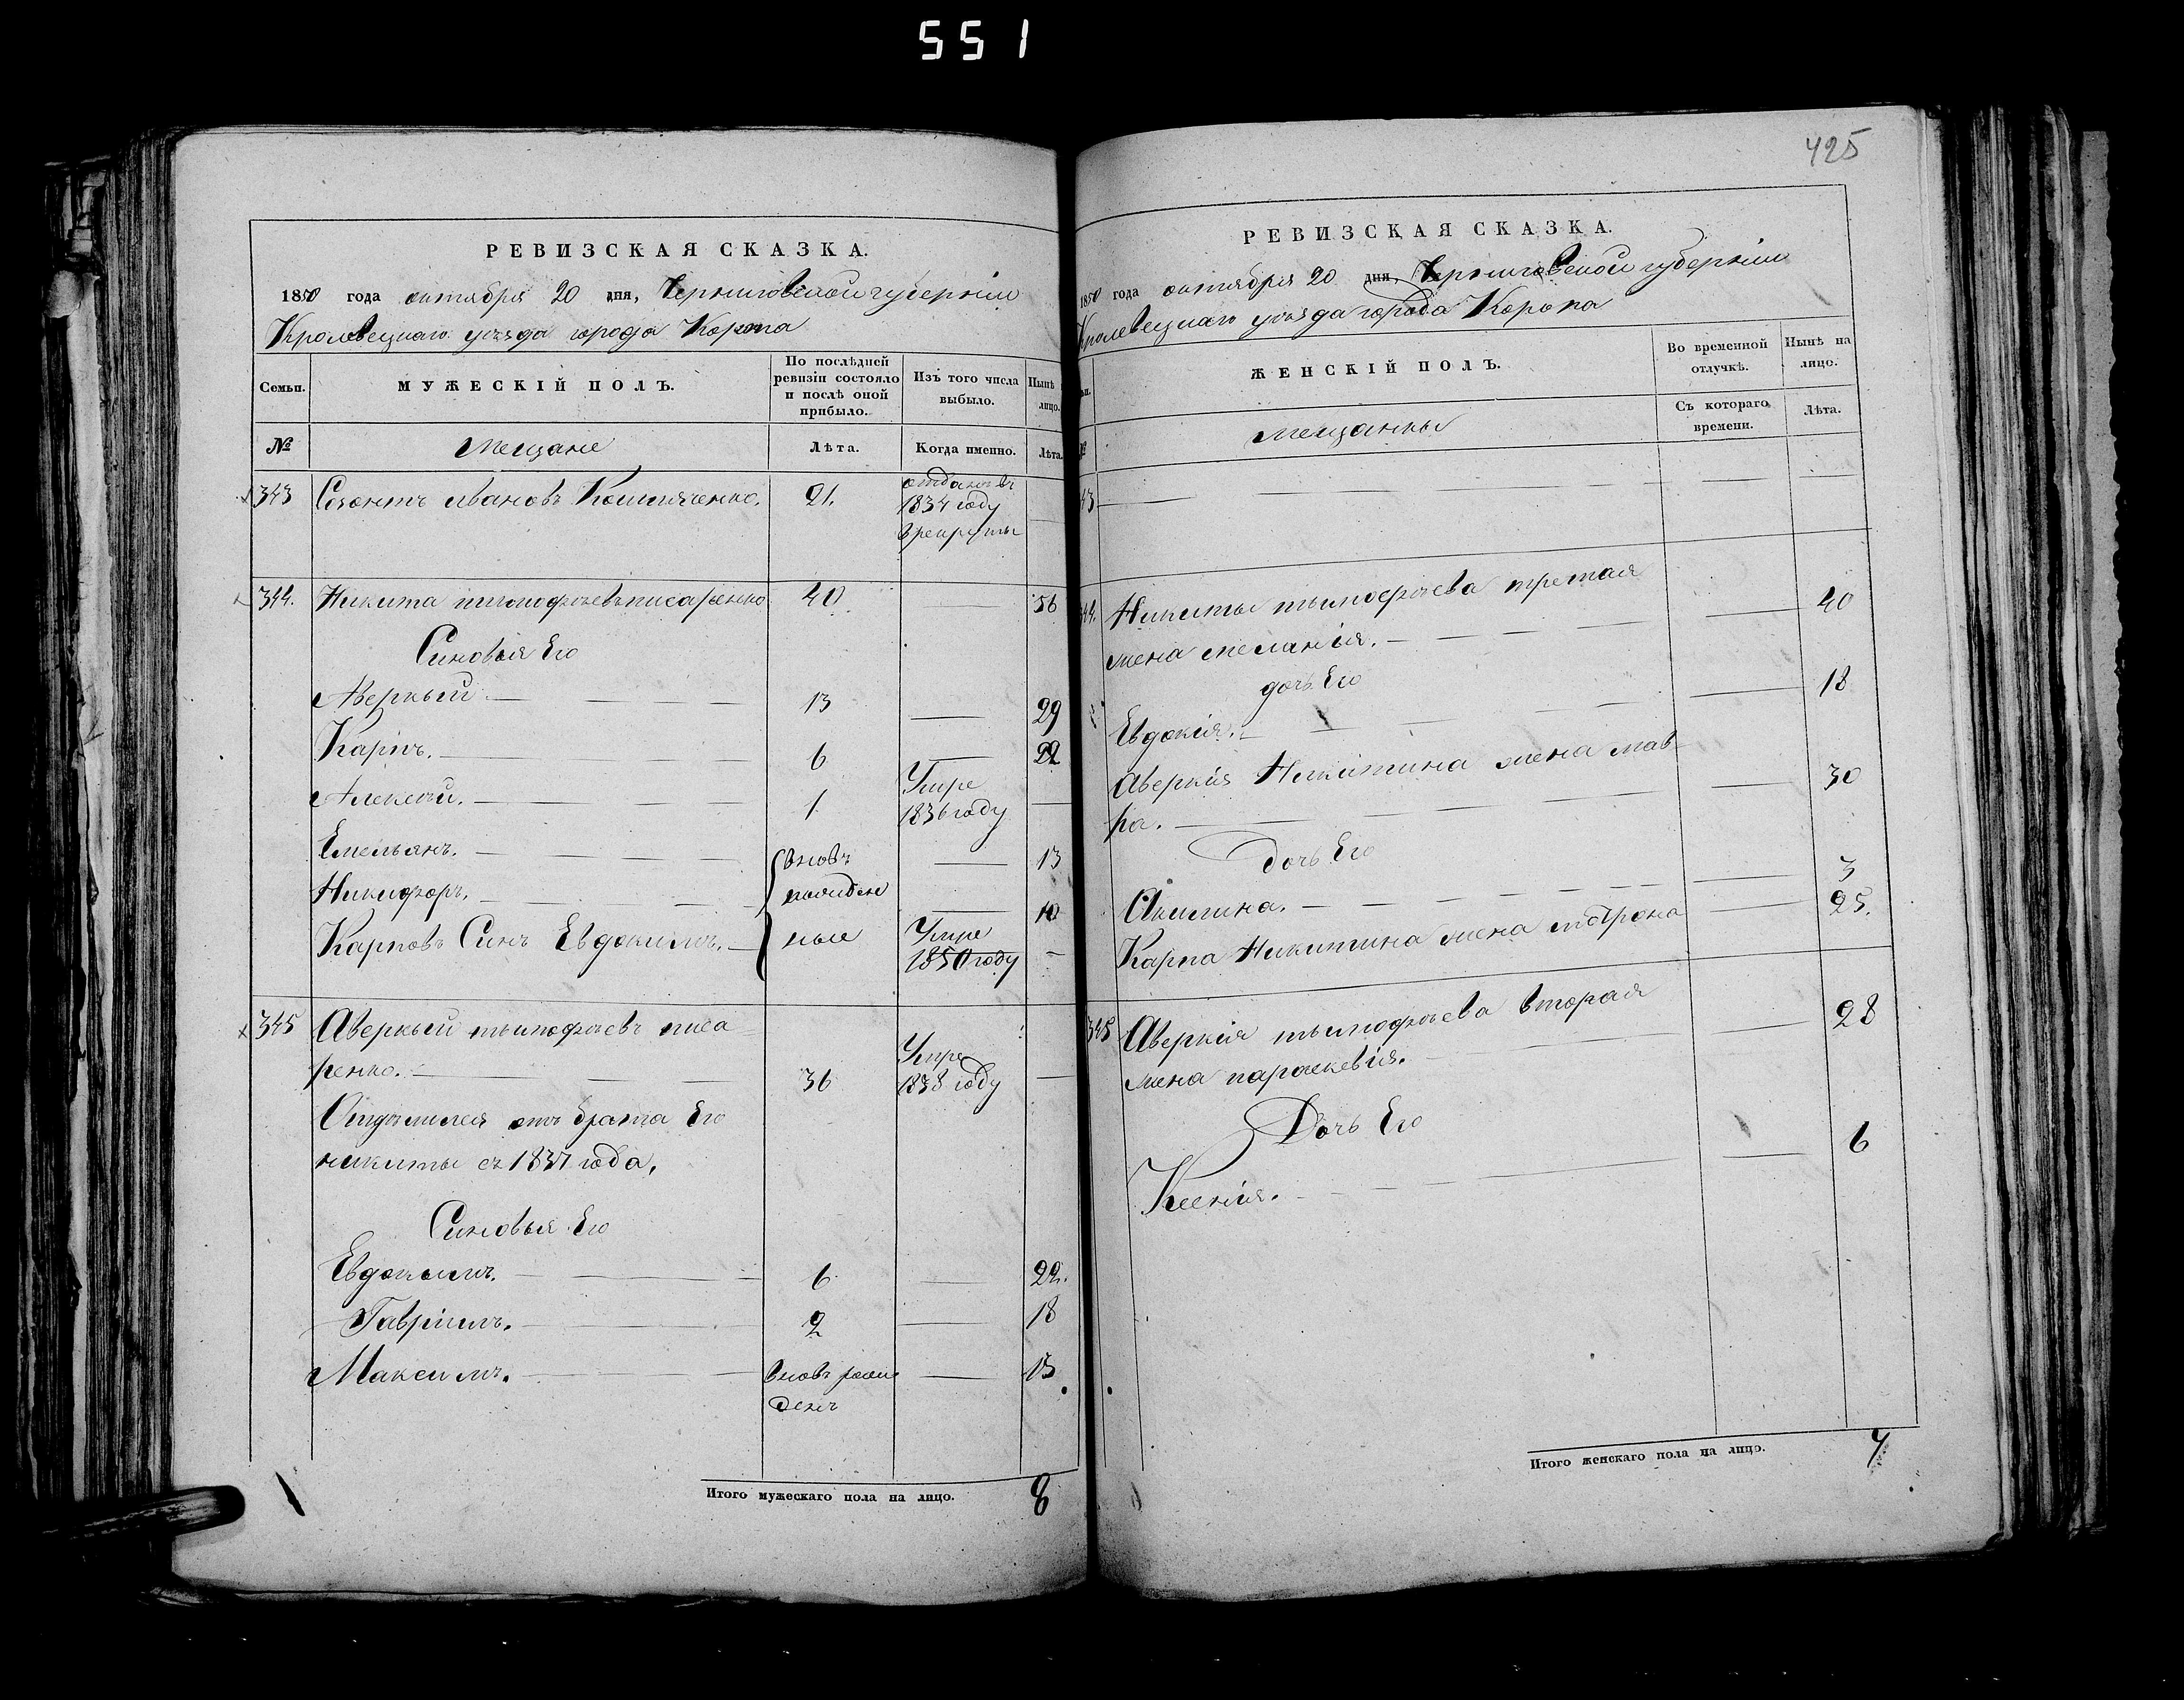 551
РЕВИЗСКАЯ СКАЗКА.
1850 года октября 20 дня, Черниговской губерніи
Кролевецкаго уѣзда города Коропа
Семьи.
МУЖЕСКІЙ ПОЛЪ.
По послѣдней ревизіи состояло и послѣ оной прибыло.
Изъ того числа выбыло.
Нынѣ
лицо.
№
Мещане
Лѣта.
Когда именно.
Лѣта.
343 Созонтъ Ивановъ 21.
отданъ въ
1834 году
в рекруты
344. Никита тимофѣевъ писаренко 40 56
Синовья Его
Аверкый 13 29
Карпъ. 6 22
Алексѣй. 1
Умре
1836 году
Емельянъ. вновь 13
Никифоръ. рожден 10
Карповъ Синъ Евдокимъ. ные
Умре
1850 году
345 Аверкый тымофѣевъ писа
ренко. 36
Умре
1838 году
Отдѣлился отъ брата Его
никиты съ 1837 года.
Синовья Его
Евдокымъ. 6 22.
Гавріилъ. 2 18
Максимъ. вновь рож 15
денъ
Итого мужескаго пола на лицо. 8
425
РЕВИЗСКАЯ СКАЗКА.
1850 года октября 20 дня, Черниговской губерніи
Кролевецкаго уѣзда города Коропа
ЖЕНСКІЙ ПОЛЪ.
Во временной отлучкѣ.
Нынѣ на лицо.
№
мещанкы
Съ котораго времени.
Лѣта.
43
344. Никиты тымофѣева третая
жена меланія. 40
дочь Его
Евдокія. 18
Аверкія Никитина жена мав-
ра. 30
Дочь Его
Акилина. 3
Карпа Никитина жена мотрона 25.
345 Аверкія тымофѣева вторая
жена параскевія. 28
Дочь Его
Ксенія. 6
Итого женскаго пола на лицо. 7